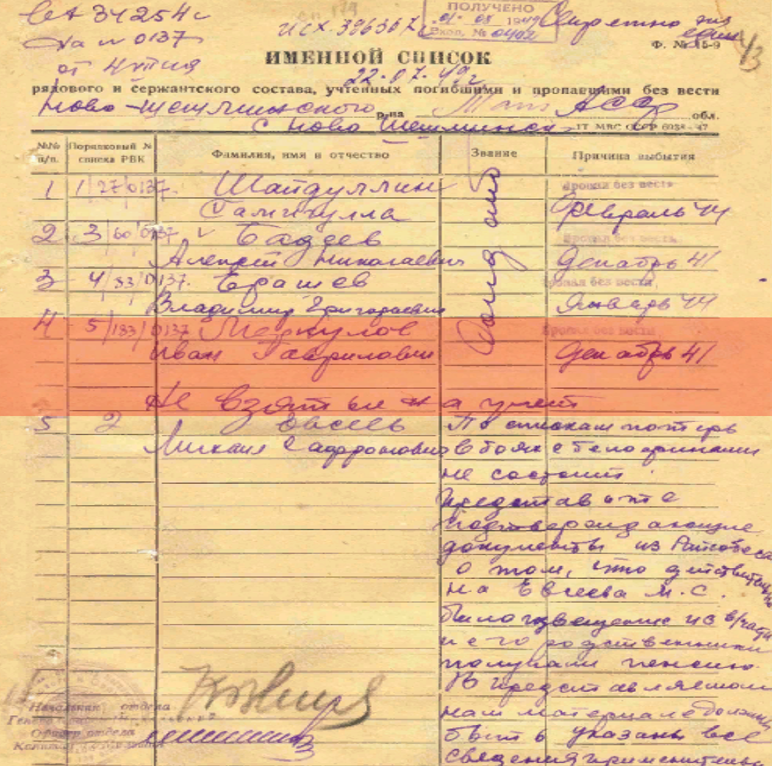 исх. 386367
ПОЛУЧЕНО
01 - 08 1949
Вход. № 0402
Секретно
экз един
43
на № 0137
Ф. № 15-9
ИМЕННОЙ СПИСОК
22.07.49 г
рядового и сержантского состава, учтенных погибшими и пропавшими без вести
Ново-Шешминского р-на Тат АССР обл.
с Ново Шешминск
1Т МВС СССР 6038-47
№№ п/п. Порядковый № списка РВК Фамилия, имя и отчество Звание Причина выбытия
1 1/27/0137. Шайдуллин Пропал без вести
февраль 44
2 3/60/0137 v Бадеев Пропал без вести
Алексей Николаевич декабрь 41
3 4/83/0137. Ерашев Пропал без вести
Владимир Григорьевич январь 44
4 5/183/0137 Меркулов Пропал без вести
Иван Гаврилович декабрь 41
Не взятые на учет
5 2 Евсеев По спискам потерь
Михаил Сафронович в боях с белофинами
не состоит.
Представьте
подтверждающие
документы из Райсобеса
о том, что действительно
на Евсеева М.С.
было извещение из в/части
и его родственники
получали пенсию.
В представляемом
нам материале должны
быть указаны все
сведения применительно
Начальник отдела
Офицер отдела
Капитан